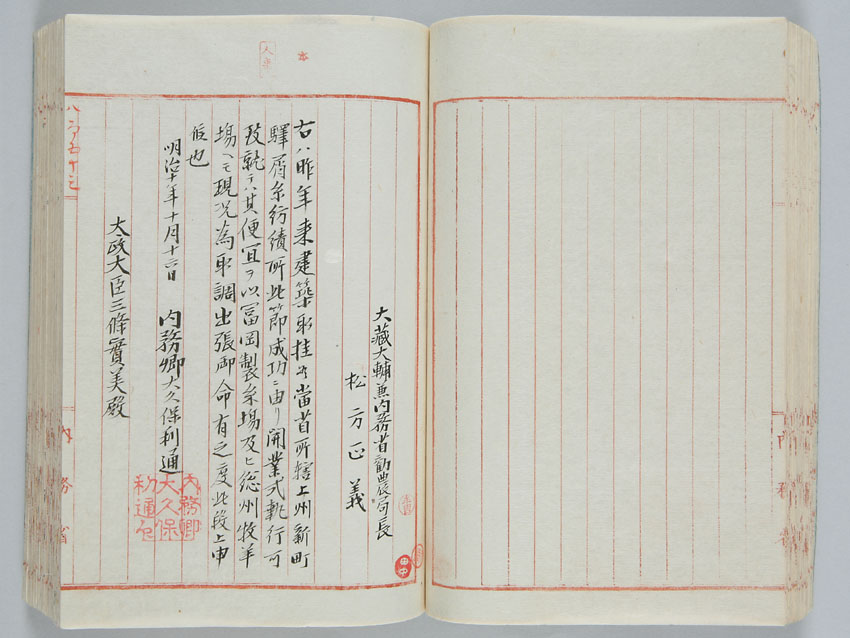 大藏大輔兼内務省勸農局長
松方正義
右ハ昨年来建築取掛候當省所轄上州新町
驛屑糸紡績所此節成功ニ由リ開業式執行可
致就テハ其便宜ヲ以冨岡製糸場及ヒ総州牧羊
場ヘモ現况為取調出張御命有之度此段上申
候也
明治十年十月十二日 内務卿大久保利通
内務卿
大久保
利通印
太政大臣三條實美殿
内務省
内務省